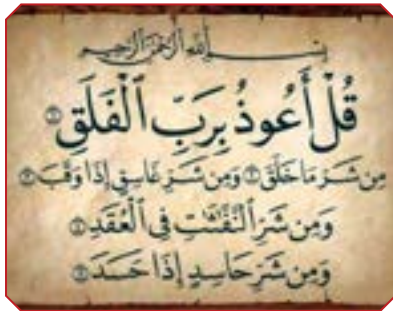 بِسْمِ اللَّهِ الرَّحْمَٰنِ الرَّحِيمِ
قُلْ أَعُوذُ بِرَبِّ الْفَلَقِ ①
مِن شَرِّ مَا خَلَقَ ② وَمِن شَرِّ غَاسِقٍ إِذَا وَقَبَ ③
وَمِن شَرِّ النَّفَّاثَاتِ فِي الْعُقَدِ ④
وَمِن شَرِّ حَاسِدٍ إِذَا حَسَدَ ⑤